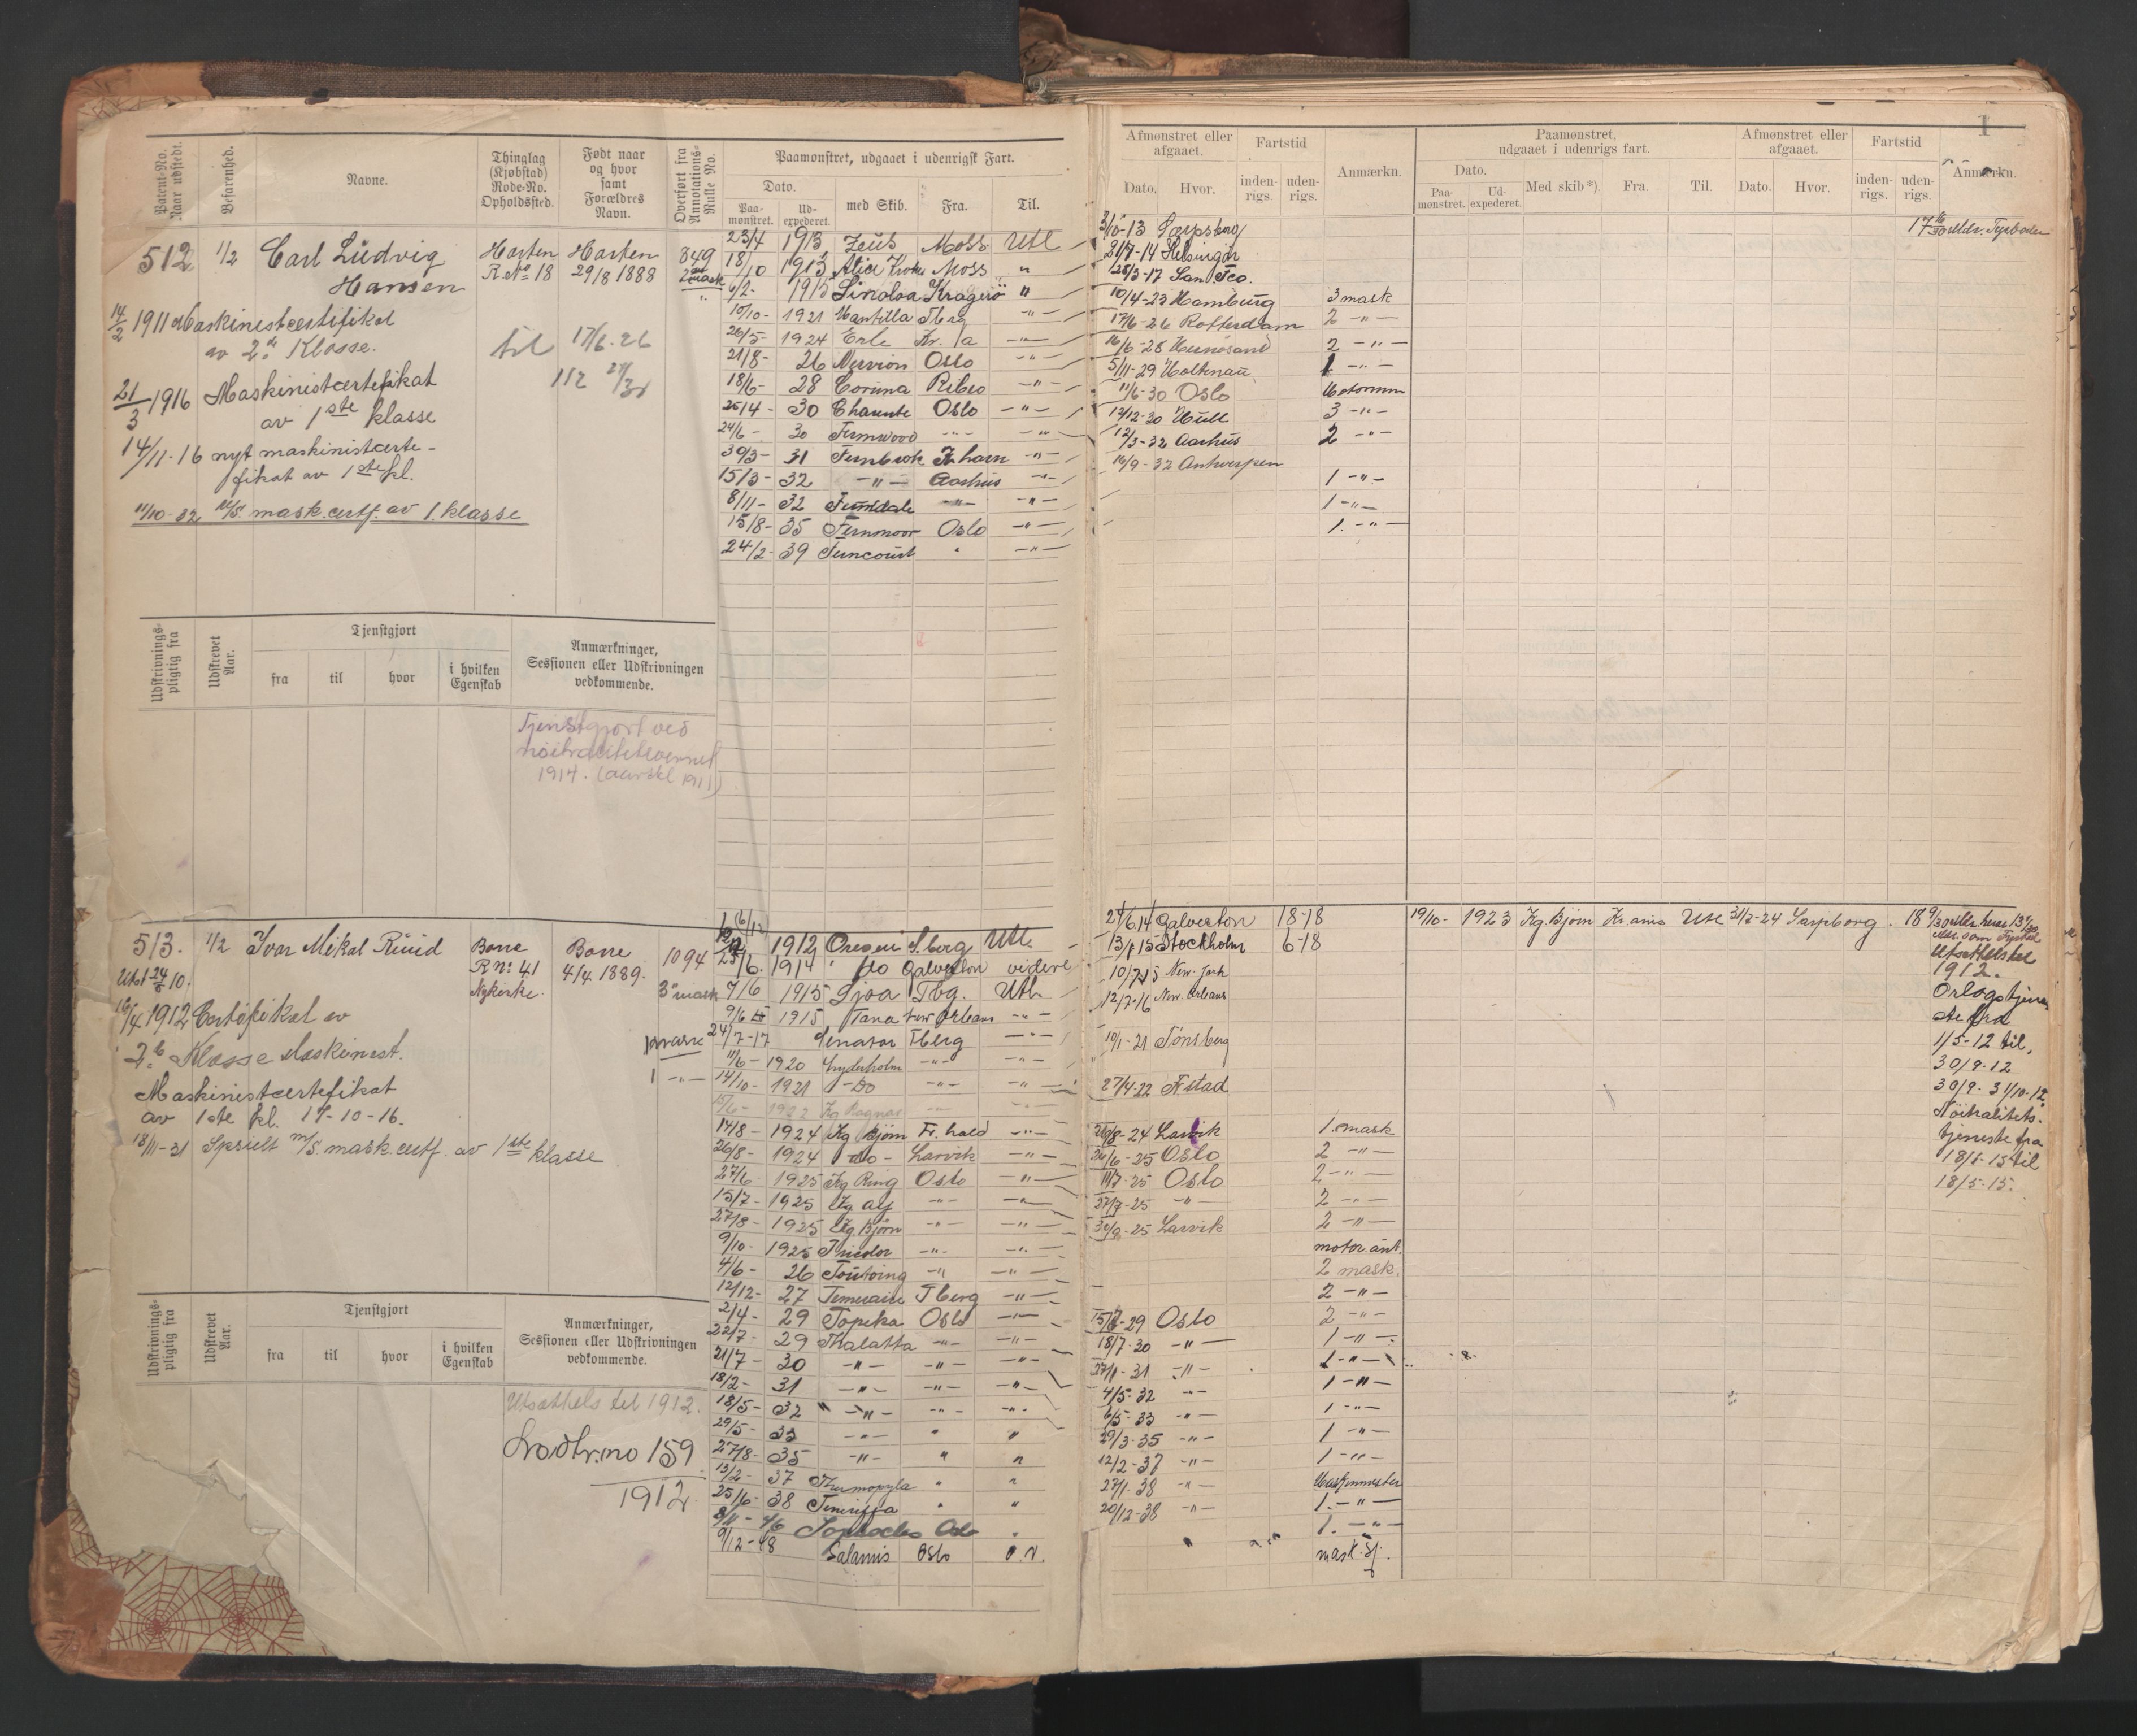 Patent-No. Naar udstedt.
Befarenhed.
Navne.
Thinglag (Kjøbstad) Rode-No. Opholdssted.
Født naar og hvor samt Forældres Navn.
Overført fra Annotations-Rulle No.
Paamønstret, udgaaet i udenrigsk Fart.
Dato.
Paa-mønstret.
Ud-expederet.
med Skib.
Fra.
Til.
512 1/2 Carl Ludvig Hansen
R.No 18 29/8 1888
849
2 mask
14/2 1911 Maskinistcertifikat
av 2. Klasse.
til 17/6.26
21/3 1916 Maskinistcertefikat
av 1ste klasse
14/11-16 nyt maskinistcerte-
fikat av 1ste kl.
11/10-32 m/s. mask.certf. av 1. klasse
23/4 1913 Zeus Moss Utl
18/10 1913 Alice Moss "
6/2- 1915 Sinaloa Kragerø "
10/10- 1921 Mantilla Tbrg -"-
26/5- 1924 Erle Kr.a -"-
21/8- 26 Oslo -"-
18/6- 28 Corona -"-
25/4- 30 Charente Oslo -"-
24/6- 30 Fernwood -"- -"-
30/3- 31 Fernbrook -"-
15/3- 32 -"- Aarhus -"-
8/11- 32 Ferndale -"- -"-
15/8- 35 Fernmoor Oslo -"-
24/2- 39 Ferncourt " -"-
Udskrivnings-pligtig fra
Udskrevet Aar.
Tjenstgjort
fra
til
hvor
i hvilken Egenskab
Anmærkninger, Sessionen eller Udskrivningen vedkommende.
Tjenstgjort ved
nøitralitetsvernet
1914. (aarskl 1911)
513. 1/2 Ivar Mikal Ruud
Borre
R No 41
Nykirke.
Borre
4/4. 1889.
1094
3 mask
16/4 1912 Certifikat av
2. Klasse Maskinist.
Maskinistcertefikat
av 1ste kl. 17-10-16.
18/11-21 Spesielt m/s. mask.certf. av 1ste klasse
1912 Oregon S.berg Utl.
1914 do Galveston videre
7/6 1915 Sjoa Tbg. Utl.
9/6 1915 Tana New Orleans -"-
24/7-17 Senator Tberg -"-
11/6- 1920 -"- -"-
14/10- 1921 -do -"- -"-
15/6- 1922 Kg Ragnar -"- -"-
14/8- 1924 Kg Bjørn Fr.hald -"-
26/8- 1924 do- Larvik -"-
27/6- 1925 Kg Ring Oslo -"-
15/7- 1925 Kg Alf -"- -"-
27/8- 1925 Kg Bjørn -"- -"-
9/10- 1925 Tricolor -"- -"-
4/6- 26 -"- -"-
12/12- 27 Temeraire Tberg -"-
2/4- 29 Topeka Oslo -"-
22/7- 29 Thalatta -"- -"-
21/7- 30 -"- -"- -"-
18/2- 31 -"- -"- -"-
18/5- 32 -"- -"- -"-
29/5- 33 -"- " "
27/8- 35 -"- " "
13/2- 37 Thermopylæ " "
25/6- 38 Teneriffa " "
8/11- 46 Sophocles Oslo "
9/12-48 Salamis Oslo
Udskrivnings-pligtig fra
Udskrevet Aar.
Tjenstgjort
fra
til
hvor
i hvilken Egenskab
Anmærkninger, Sessionen eller Udskrivningen vedkommende.
Utsættels til 1912.
159
1912
Afmønstret eller afgaaet.
Fartstid
Anmærkn.
Paamønstret, udgaaet i udenrigs fart.
Afmønstret eller afgaaet.
Fartstid
Anmærkn.
Dato.
Hvor.
inden-rigs.
uden-rigs.
Dato.
Paa-mønstret.
Ud-expederet.
Med skib*).
Fra.
Til.
Dato.
Hvor.
inden-rigs.
uden-rigs.
3/10-13 Sarpsborg
21/7-14 Helsingør
28/3-17 San Fco.
10/4-23 Hamburg 3 mask
17/6-26 Rotterdam 2 -"-
16/6-28 2 -"-
5/11-29 Holtenau 1 -"-
11/6-30 Oslo
13/12-30 Hull 3 -"-
12/3-32 Aarhus 2 -"-
16/9-32 Antwerpen
1 -"-
1 -"-
1. -"-
Galveston 18-18
Stockholm 6-18
New York
12/7-16 New Orleans
10/1-21 Tønsberg
27/4-22 F.stad
26/8-24 Larvik 1. mask
26/6-25 Oslo 2 -"-
11/7-25 Oslo 2 -"-
27/7-25 -"- 2 -"-
30/9-25 Larvik 2 -"-
motor.ant.
2 mask.
2 -"-
15/7-29 Oslo 2 -"-
18/7-30 -"- 1 -"-
27/1-31 -"- 1 -"-
4/5-32 -"- 1 -"-
6/5-33 -"- 1 -"-
29/3-35 -"- 1 -"-
12/2-37 -"- 1 -"-
27/1-38 -"- Maskinmester
20/12-38 -"- 1. -"-
1. -"-
19/10- 1923 Kg. Bjørn Kr.ania Utl 31/3-24 Sarpsborg
Utsættelse
1912.
Orlogstjene-
ste fra
1/5-12 til
30/9-12
30/9-31/10-12.
Nøitralitets-
tjeneste fra
18/1-15 til
18/5-15.